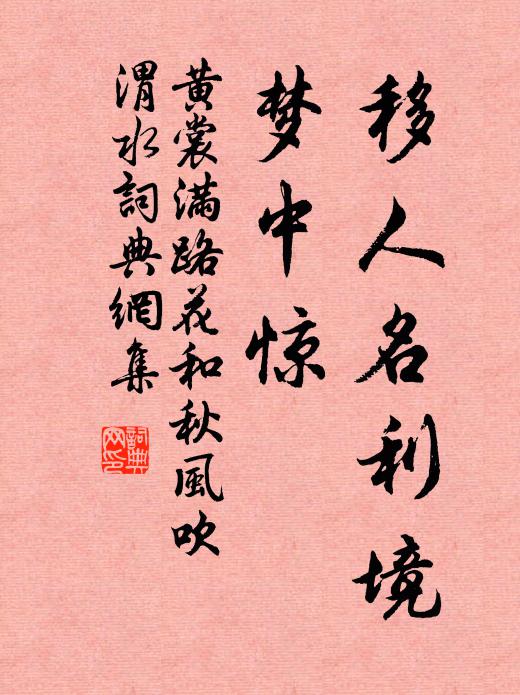 移人名利境
梦中惊
黄裳满路花和秋風吹
渭水詞典網集
詞典网印